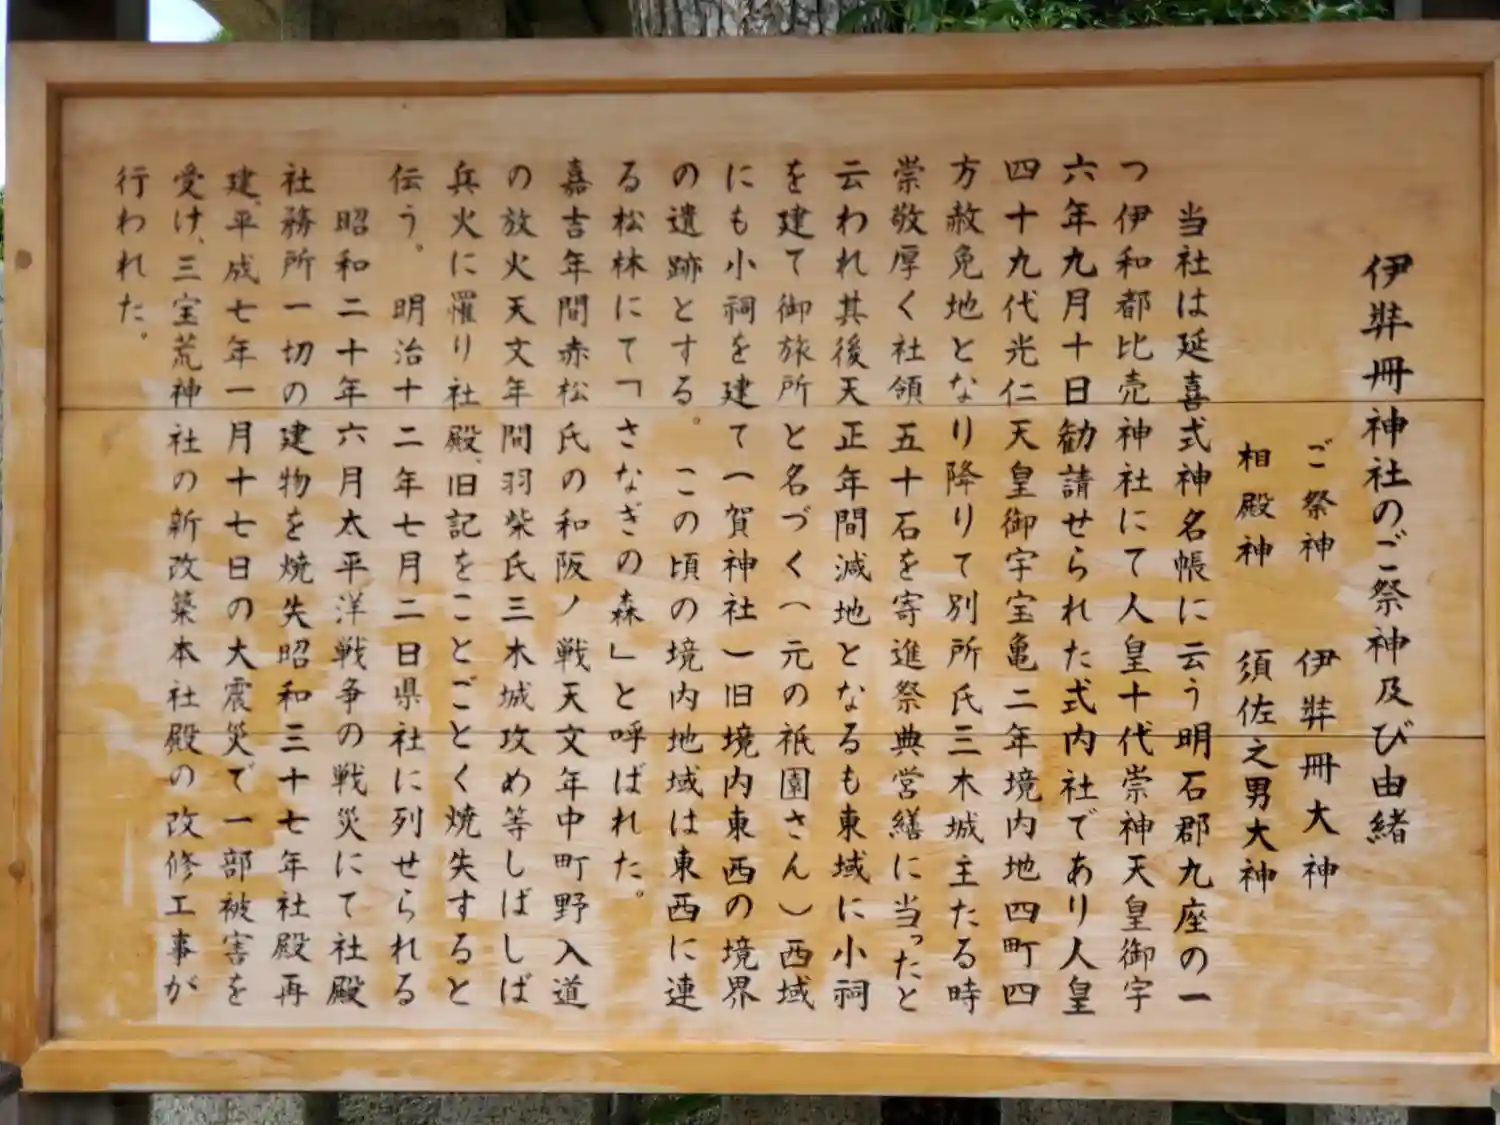 伊弉冊神社のご祭神及び由緒
ご祭神　伊弉冊大神
相殿神　須佐之男大神
当社は延喜式神名帳に云う明石郡九座の一
つ伊和都比売神社にて人皇十代崇神天皇御宇
六年九月十日勧請せられた式内社であり人皇
四十九代光仁天皇御宇宝亀二年境内地四町四
方赦免地となり降りて別所氏三木城主たる時
崇敬厚く社領五十石を寄進祭典営繕に当ったと
云われ其後天正年間減地となるも東域に小祠
を建て御旅所と名づく（元の祇園さん）西域
にも小祠を建て（賀神社）旧境内東西の境界
の遺跡とする。　この頃の境内地域は東西に連
る松林にて「さなぎの森」と呼ばれた。
嘉吉年間赤松氏の和阪ノ戦天文年中町野入道
の放火天文年間羽柴氏三木城攻め等しばしば
兵火に罹り社殿、旧記をことごとく焼失すると
伝う。　明治十二年七月二日県社に列せられる
昭和二十年六月太平洋戦争の戦災にて社殿
社務所一切の建物を焼失昭和三十七年社殿再
建、平成七年一月十七日の大震災で一部被害を
受け、三宝荒神社の新改築本社殿の改修工事が
行われた。